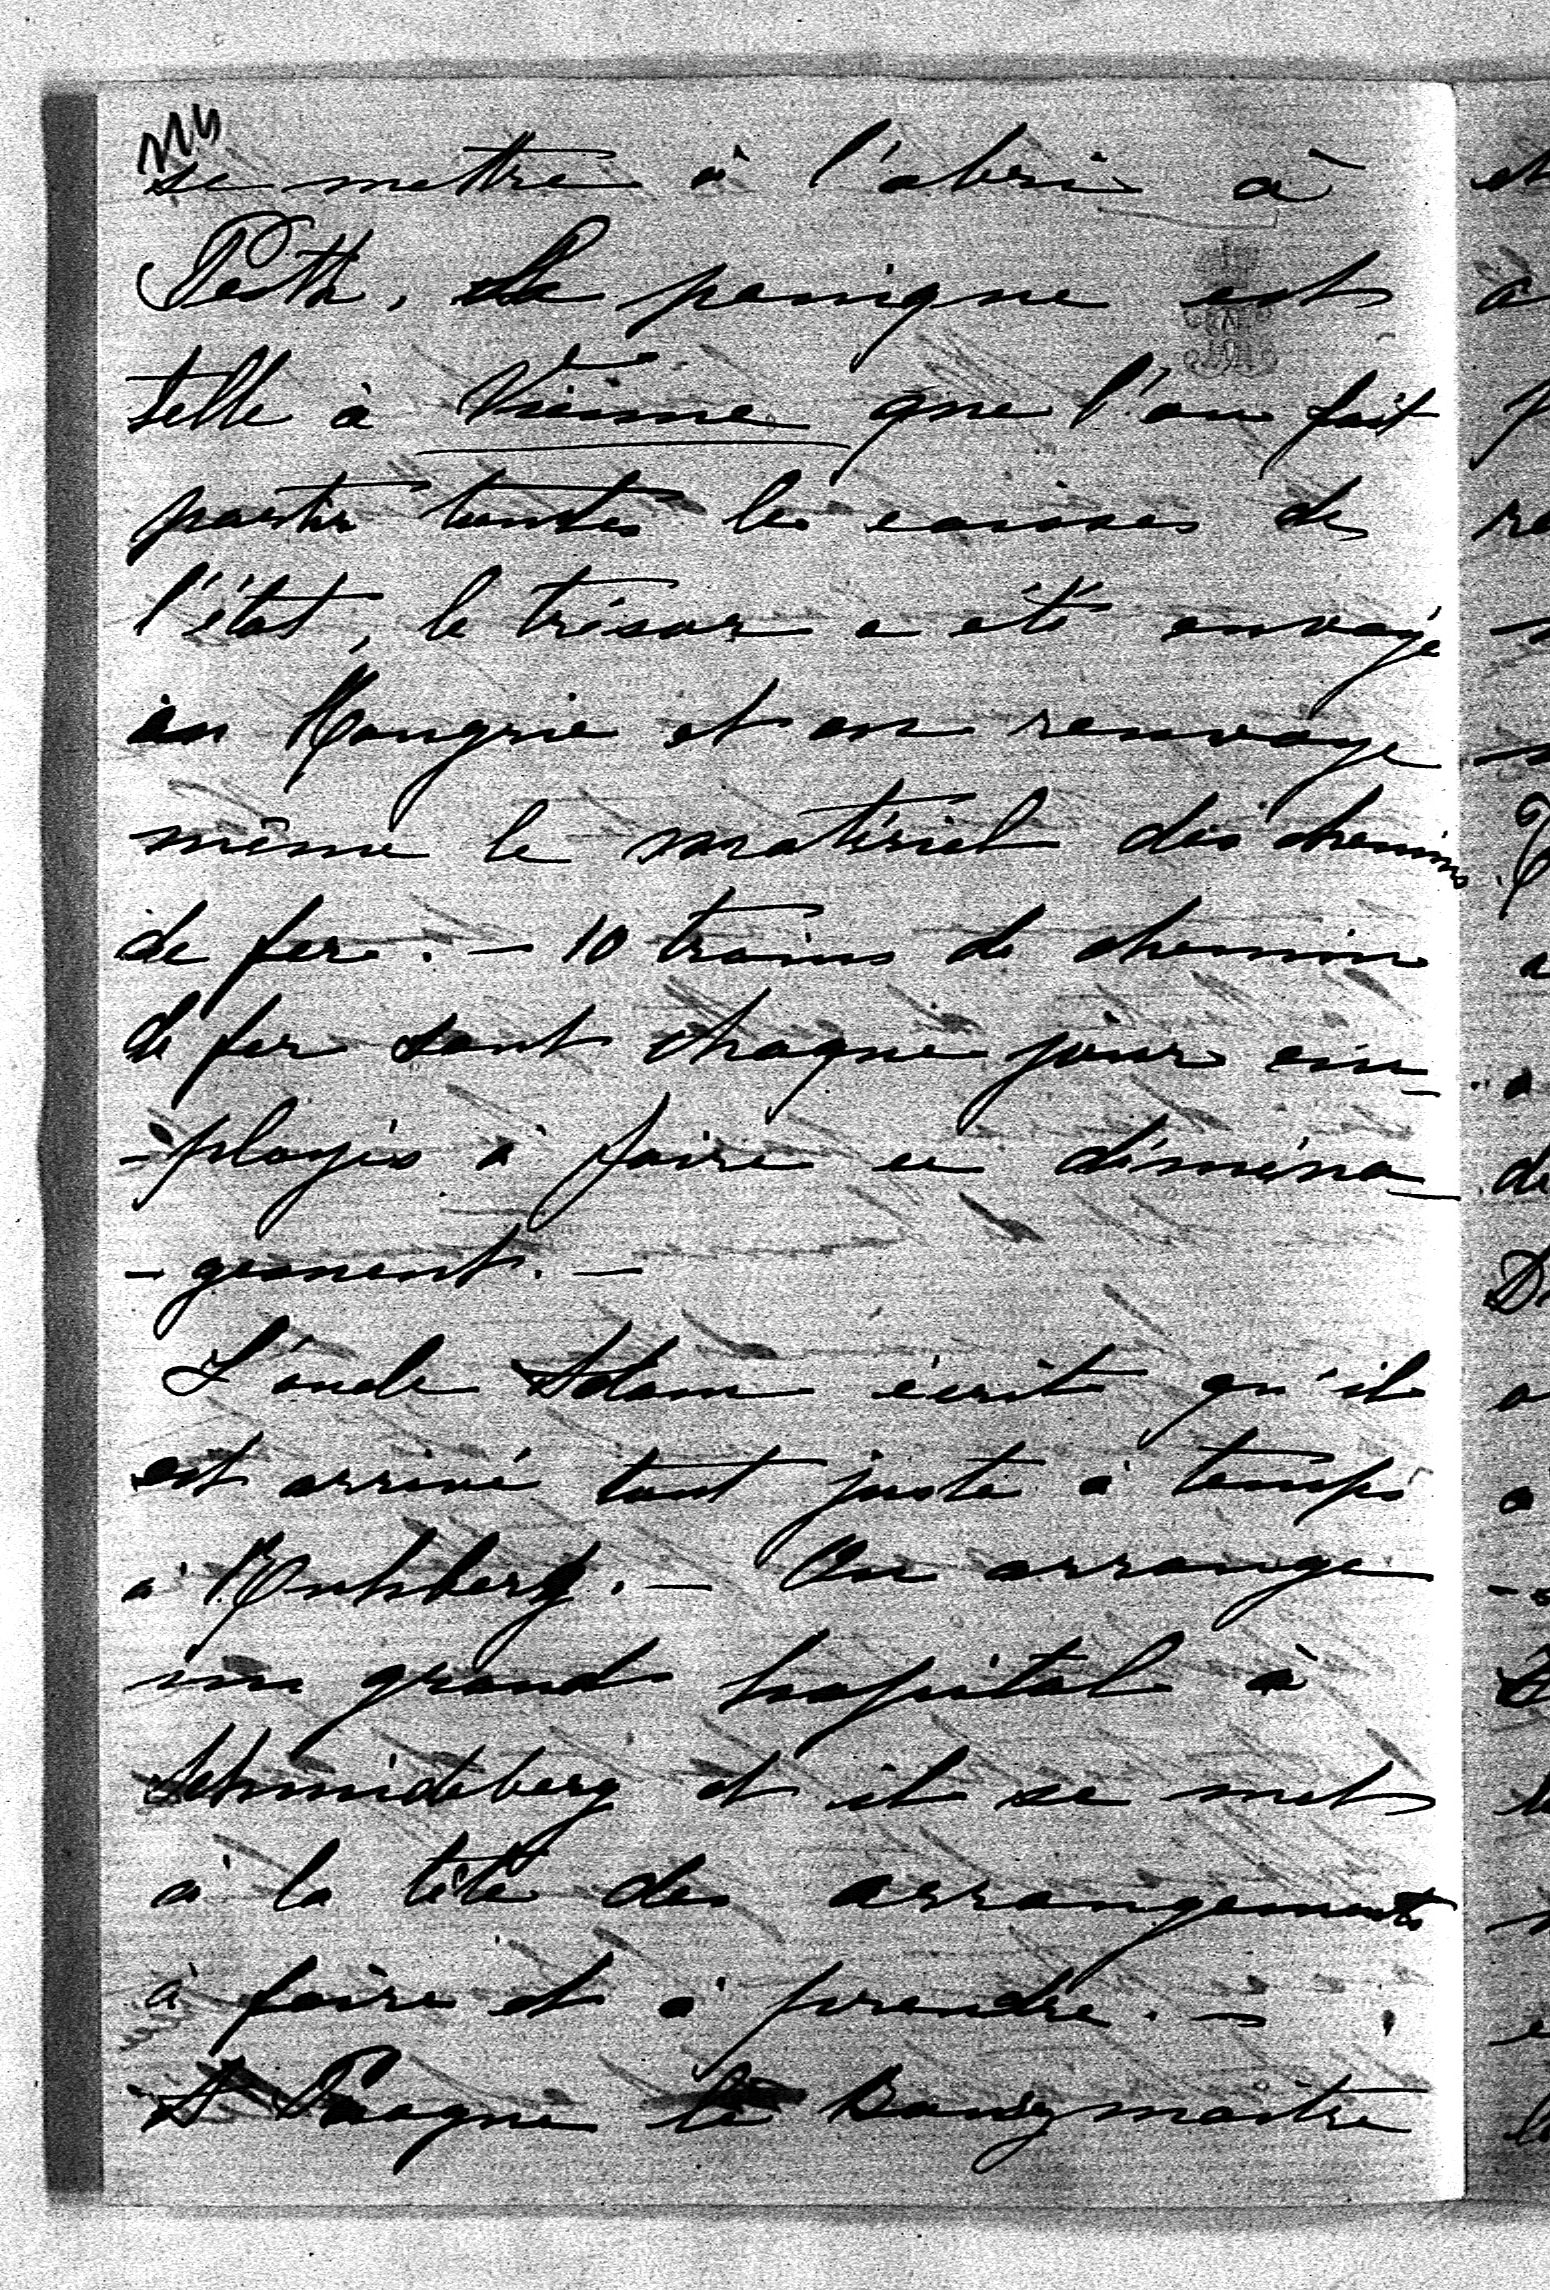 se mettre à l'abri à
Pesth. La panique est
telle à Vienne que l'on fait
partir toutes les caisses de
l'état, le trésor a été envoyé
en Hongrie et on renvoye
même le matériel des chemins
de fer. — 10 trains de chemin
de fer sont chaque jour em-
-ployés à faire ce déména-
-gement. —
L'oncle Adam écrit qu'il
est arrivé tout juste à temps
à Ruhberg. — On arrange
un grand hopital à
Schmideberg et il se met
à la tête des arrangements
à faire et à prendre. —
A Prague le Bourgmaitre